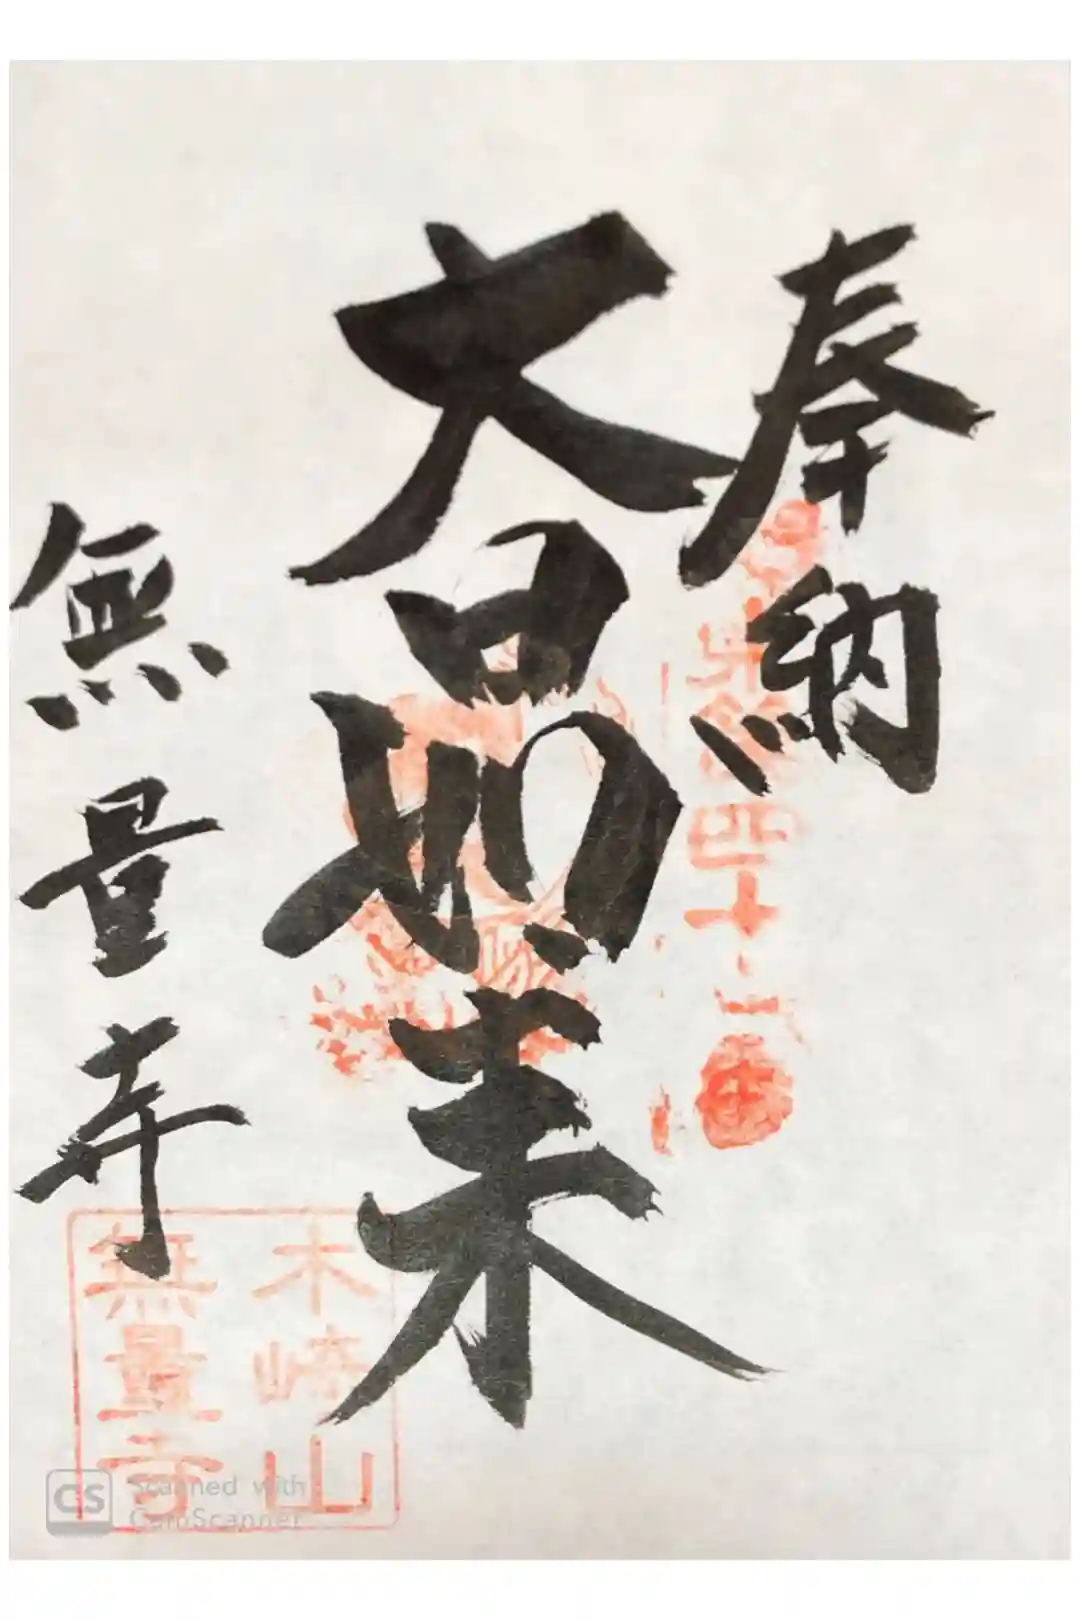 奉納
大日如来
無量寺
木崎山
無量寺
CS Scanned with
CamScanner